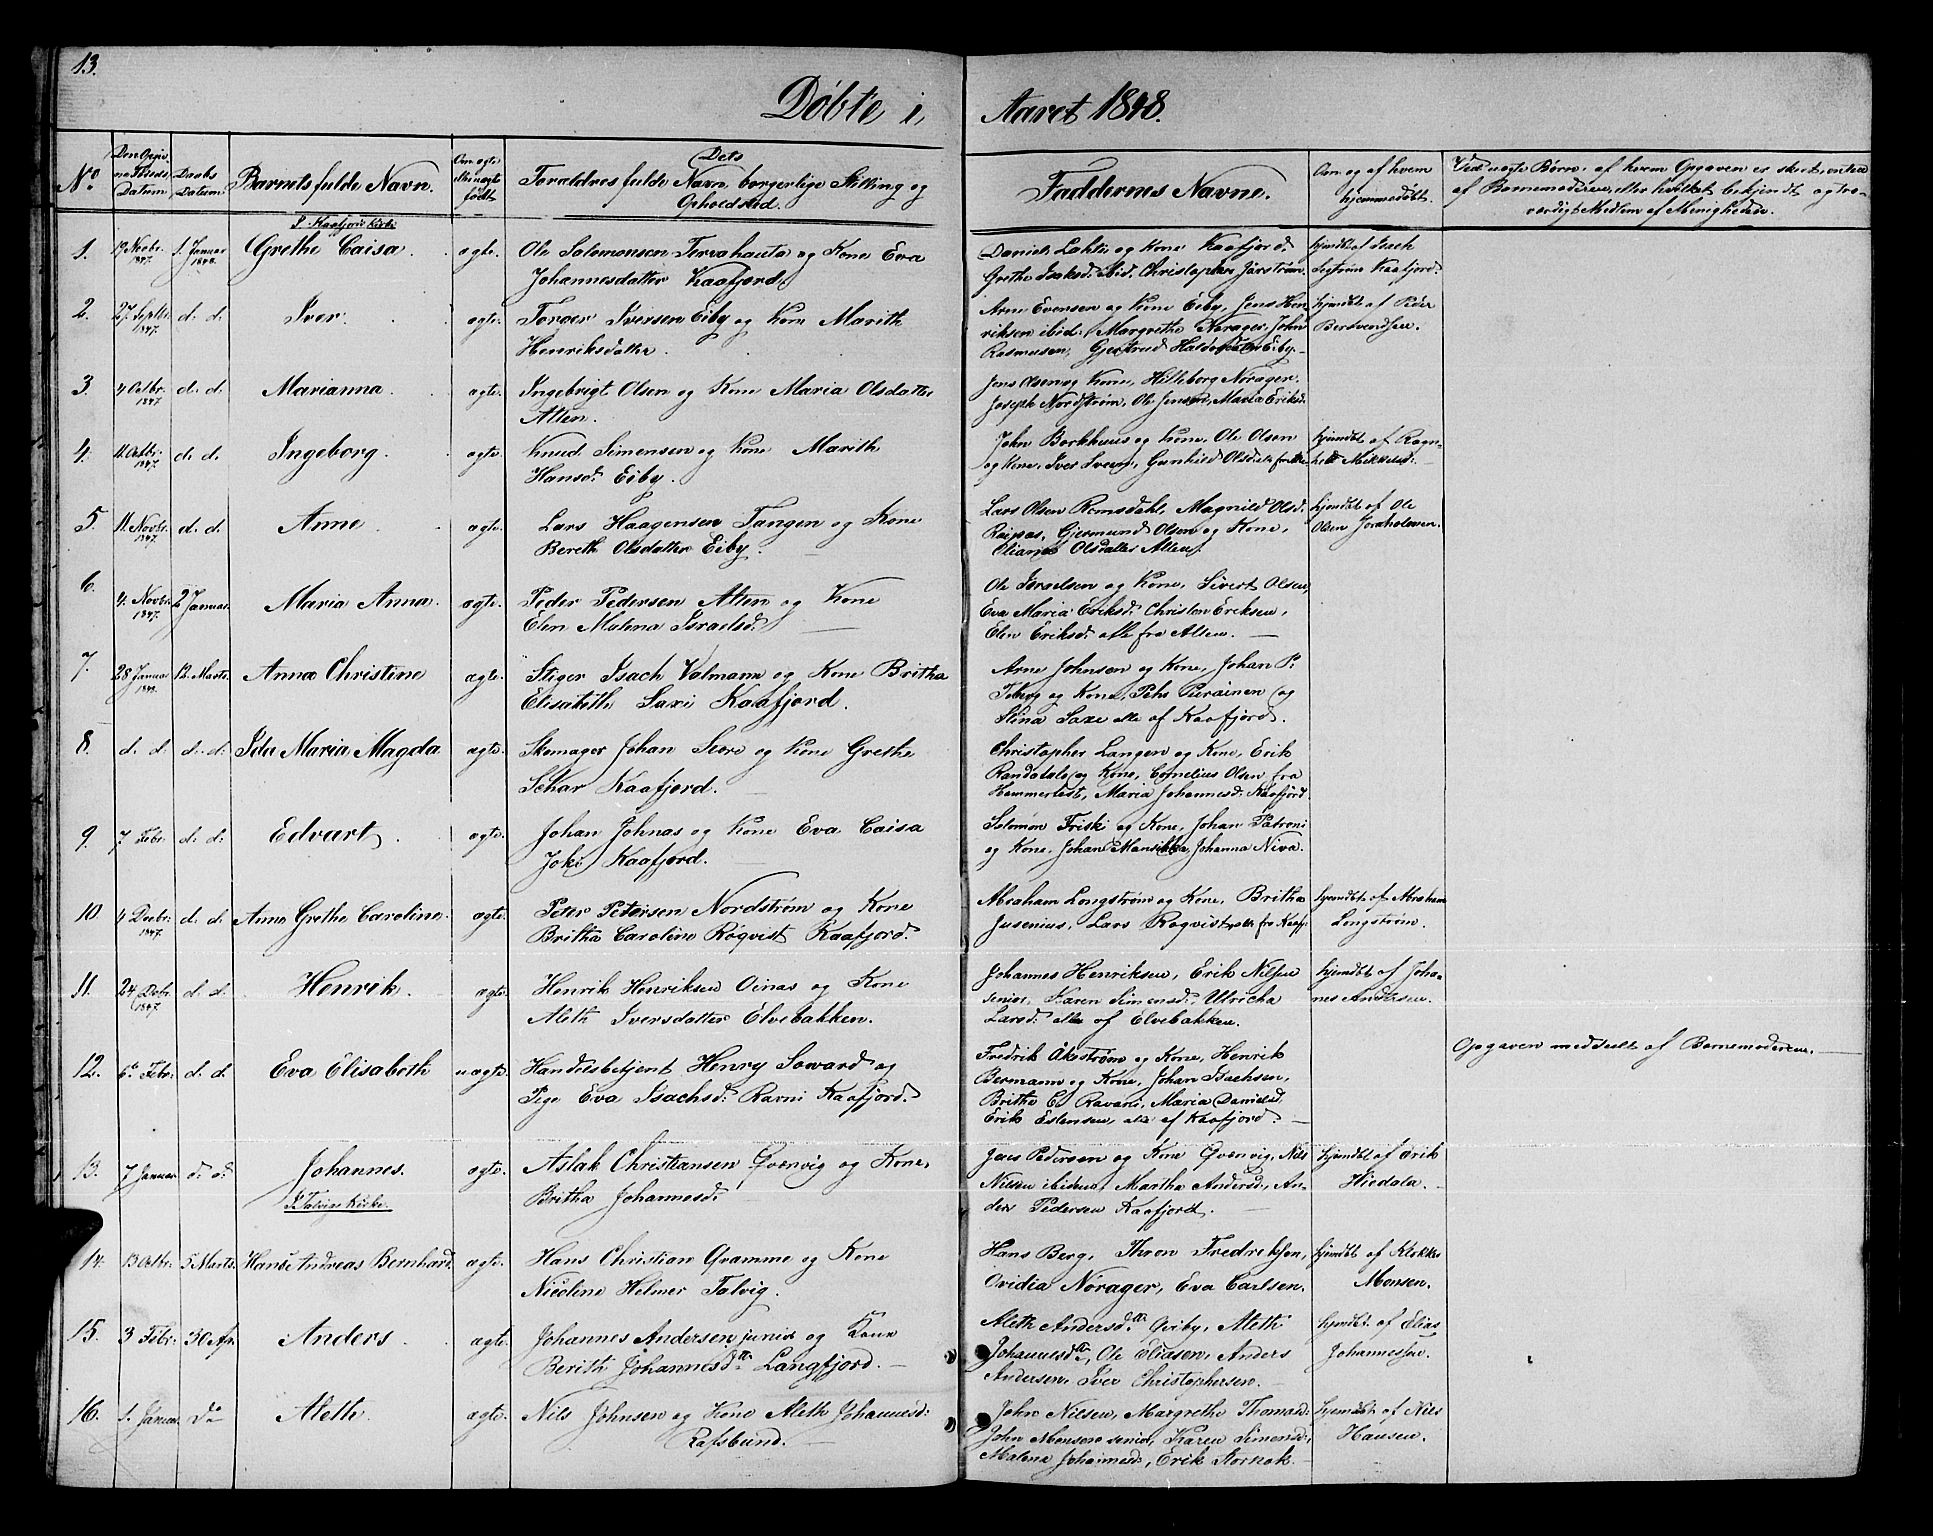 13.
Døbte i, Aaret 1848.
No
Den Opgiv-
ne Føds.
Datum
Daabs
Datum
Barnets fulde Navn.
Om ægte
ell. uægte
født
Dets
Forældres fulde Navn, borgerlige Stilling og
Opholdsted.
Faddernes Navne.
Om og af hvem
hjemmedøbt.
Ved uægte Børn, af hvem Opgaven er skeet, enten
af Barnemoderen, eller hvilket bekjendt og tro-
værdigt Medlem af Menigheden.
I Kaafjord Kirke
1. 19 Novbr. 1847. 1. Januar 1848. Grethe Caisa. ægte. Ole Salomonsen Tervahauta og Kone Eva
Johannesdatter Kaafjord.
Daniel Lakti og Kone Kaafjord.
Grethe Isaksd. ibid, Christopher Jørstrøm.
hjemdbt af Isach
Kaafjord.
2. 27 Septbr. 1847. d. d. Iver. ægte. Torger Iversen Eiby og Kone Marith
Henriksdatter.
Arne Evensen og Kone Eiby, Jens Hen-
riksen ibid: Margrethe Norager, John
Rasmusen, Gjertrud Eiby.
hjemdbt af Peder
3. 4 Octbr. 1847. d. d. Marianna ægte. Ingebrigt Olsen og Kone Maria Olsdatter
Alten.
Jens Olsen og Kone, Hilleborg Norager.
Joseph Nordstrøm, Ole Jensen, Maria Eriksd.
4. 11 Octbr. 1847. d. d. Ingeborg. ægte. Knud Simensen og Kone Marith
Hansd. Eiby.
John Borkhuus og Kone, Ole Olsen
og Kone, Iver Svens, Gunhild Olsd.
hjemdbt af Ragn-
hild Mikkelsd.
5. 11. Novbr. 1847. d. d. Anne. ægte. Lars Haagensen Tangen og Kone
Bereth Olsdatter Eiby.
Lars Olsen Romsdahl, Magnild Olsd.
Raipas, Gjermund Olsen og Kone,
Eliana Olsdatter Alten.
hjemdbt af Ole
Olsen Jordholmen.
6. 4. Novbr. 1847. 2 Januar. Maria Anna. ægte. Peder Pedersen Alten og Kone
Elen Malena Israelsd.
Ole Israelsen og Kone, Sivert Olsen,
Eva Maria Eriksd. Christen Eriksen,
Elen Eriksd. alle fra Alten.
7. 28 Januar 1848. 12. Marts. Anna Christine ægte. Stiger Isach Valmann og Kone Britha
Elisabeth Saxi Kaafjord.
Arne Johnsen og Kone, Johan P.
Foberg og Kone, Pehr Peräinen og
Stina Saxe alle af Kaafjord.
8. d. d. d. d. Ida Maria Magda ægte. Skomager Johan Score og Kone Grethe
Schar Kaafjord.
Christopher Langen og Kone, Erik
Randatalo og Kone, Cornelius Olsen fra
Hammerfest, Maria Johannesd. Kaafjord.
9. 7 Febr. d. d. Edvart. ægte. Johan Johnas og Kone Eva Caisa
Joki Kaafjord.
Salomon Friski og Kone, Johan Patroni
og Kone, Johan Mansikka, Johanna Niva.
10. 4 Decbr. 1847. d. d. Anna Grethe Caroline. ægte. Peter Petersen Nordstrøm og Kone
Britha Caroline Røqvist Kaafjord.
Abraham Longstrøm og Kone, Britha
Jusenius, Lars Røqvist, alle fra Kaafj.
hjemdbt af Abraham
Longstrøm.
11. 24 Decbr. 1847. d. d. Henrik. ægte. Henrik Henriksen Oinas og Kone
Aleth Iversdatter Elvebakken.
Johannes Henriksen, Erik Nilsen
senior, Karen Simensd. Ulricha
Larsd. alle af Elvebakken.
hjemdbt af Joha-
nes Andersen.
12. 6te Febr. d. d. Eva Elisabeth u.ægte. Handelsbetjent Henry Soward og
Pige Eva Isachsd. Ravni Kaafjord.
Fredrik Åkestrøm og Kone, Henrik
Bermann og Kone, Johan Isachsen,
Britha C. Ravani, Maria Danielsd.
Erik Estensen, alle af Kaafjord.
Opgaven meddeelt af Barnemoderen.
13. 7 Januar. d. d. Johannes. ægte. Aslak Christiansen Qvænvig og Kone,
Britha Johannesd.
Jens Pedersen og Kone Qvenvig, Nils
Nilsen ibidem, Martha Andersd., An-
ders Pedersen Kaafjord.
hjemdbt af Erik
Hiedala.
I Talvigs Kirke.
14. 13 Octbr. 5 Marts. Hans Andreas Bernhard. ægte. Hans Christian Qvamme og Kone
Nicoline Helmer Talvig.
Hans Berg, Thron Fredriksen,
Ovidia Nørager, Eva Carlsen.
hjemdbt af Klokker
Monsen.
15. 3 Febr. 30 Apr. Anders. ægte. Johannes Andersen junior og Kone
Berith Johannesdtt. Langfjord.
Aleth Andersdtt. Qviby, Aleth
Johannesdtt., Ole Eliasen, Anders
Andersen, Iver Christophersen.
hjemdbt. af Elias
Johannessen.
16. 1. Januar. Do Aleth. ægte. Nils Johnsen og Kone Aleth Johannesd:
Rafsbund.
John Nilsen, Margrethe Thomasd:
John Monsen senior, Karen Simensd:,
Malena Johannesd:, Erik Stornok.
hjemdbt af Nils
Hansen.